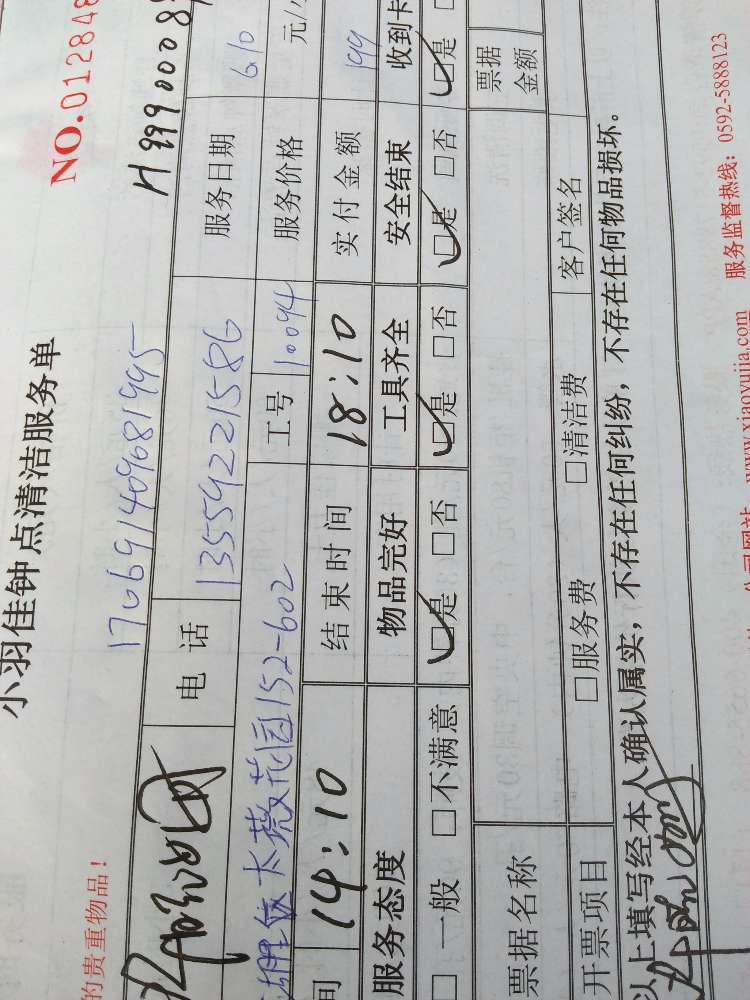 小羽佳钟点清洁服务单
NO.012848
的贵重物品!
170691409681995
H9990008
电话 13559221586 服务日期 6/10
152-602 工号 10094 服务价格 元/
间 14:10 结束时间 18:10 实付金额 199
服务态度 物品完好 工具齐全 安全结束 收到卡
□一般 □不满意 □是 □否 □是 □否 □是 □否 □是
票据名称 票据金额
开票项目 □服务费 □清洁费 客户签名
以上填写经本人确认属实，不存在任何纠纷，不存在任何物品损坏。
公司网站 www.xiaoyujia.com 服务监督热线: 0592-5888123